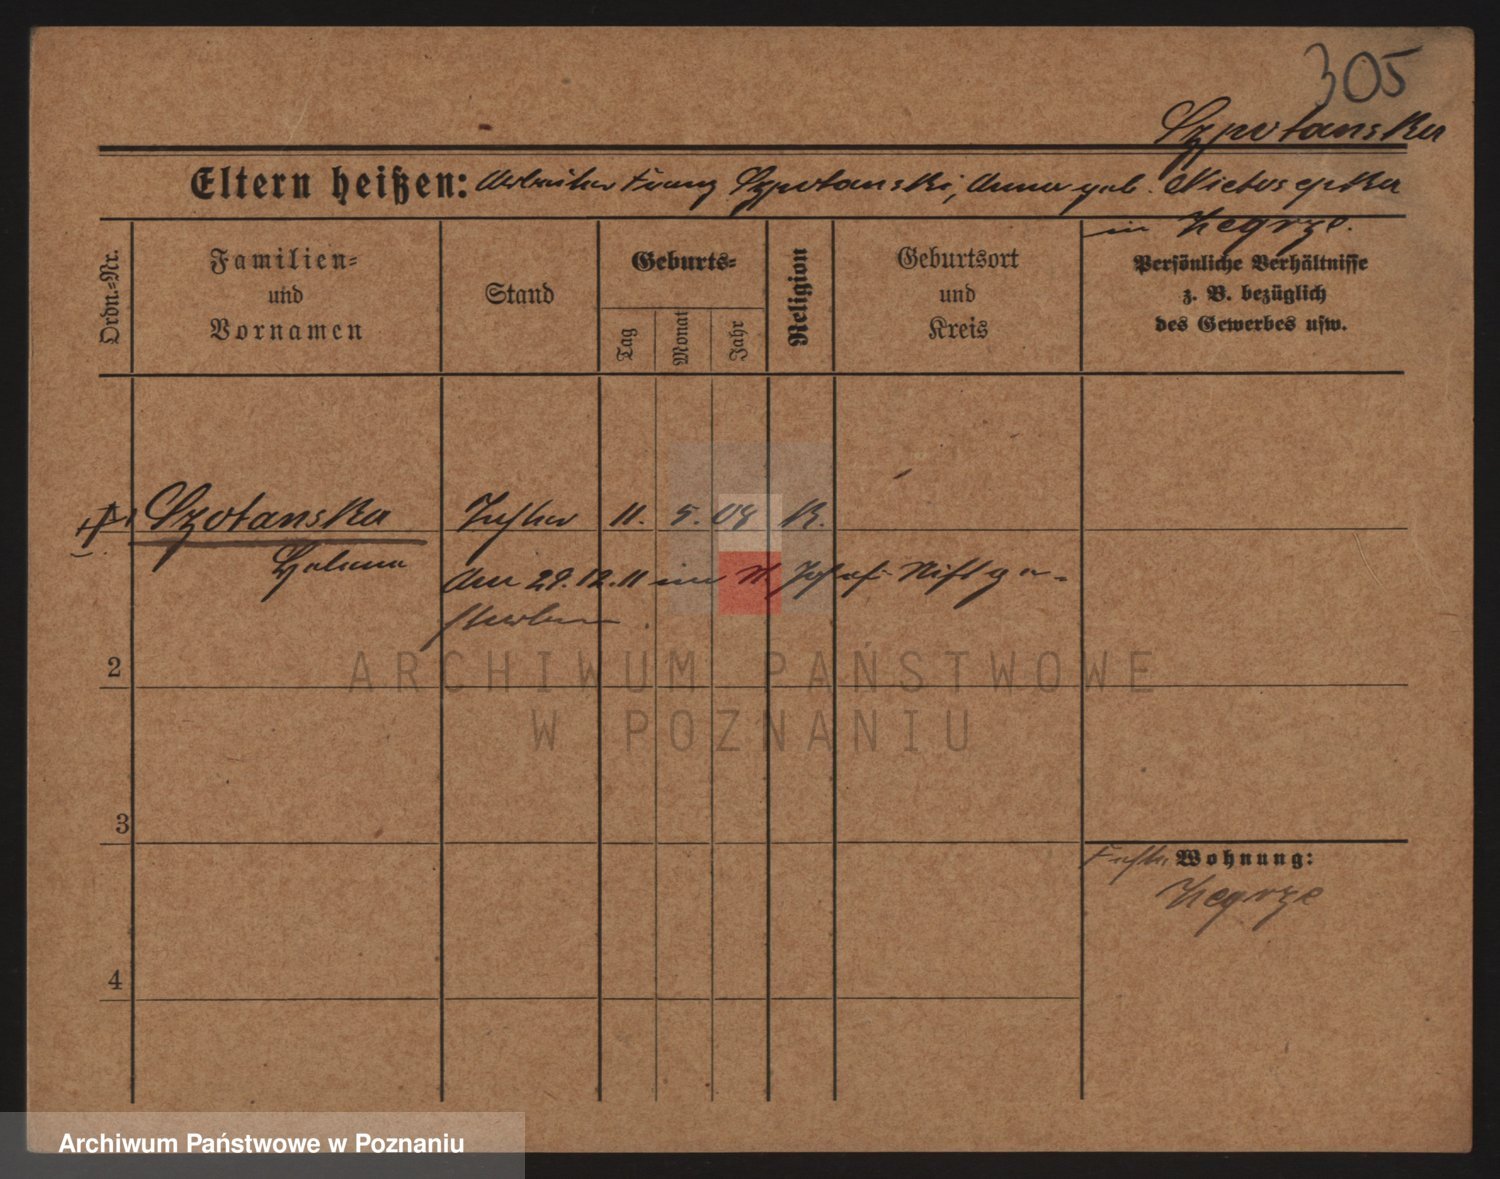 305
Szpotanska
Eltern heißen: Arbeiter Franz Szpotanski, Anna geb.
in Zegrze.
Ordn.-Nr.
Familien-
und
Vornamen
Stand
Geburts-
Tag
Monat
Jahr
Religion
Geburtsort
und
Kreis
Persönliche Verhältnisse
z. B. bezüglich
des Gewerbes usw.
1 Szotanska Tochter 11. 5. 08 K.
Helena
Am 29.12.11 im St. Josef-Stift ge-
storben.
2
ARCHIWUM PAŃSTWOWE
W POZNANIU
3
Wohnung:
Zegrze
4
Archiwum Państwowe w Poznaniu